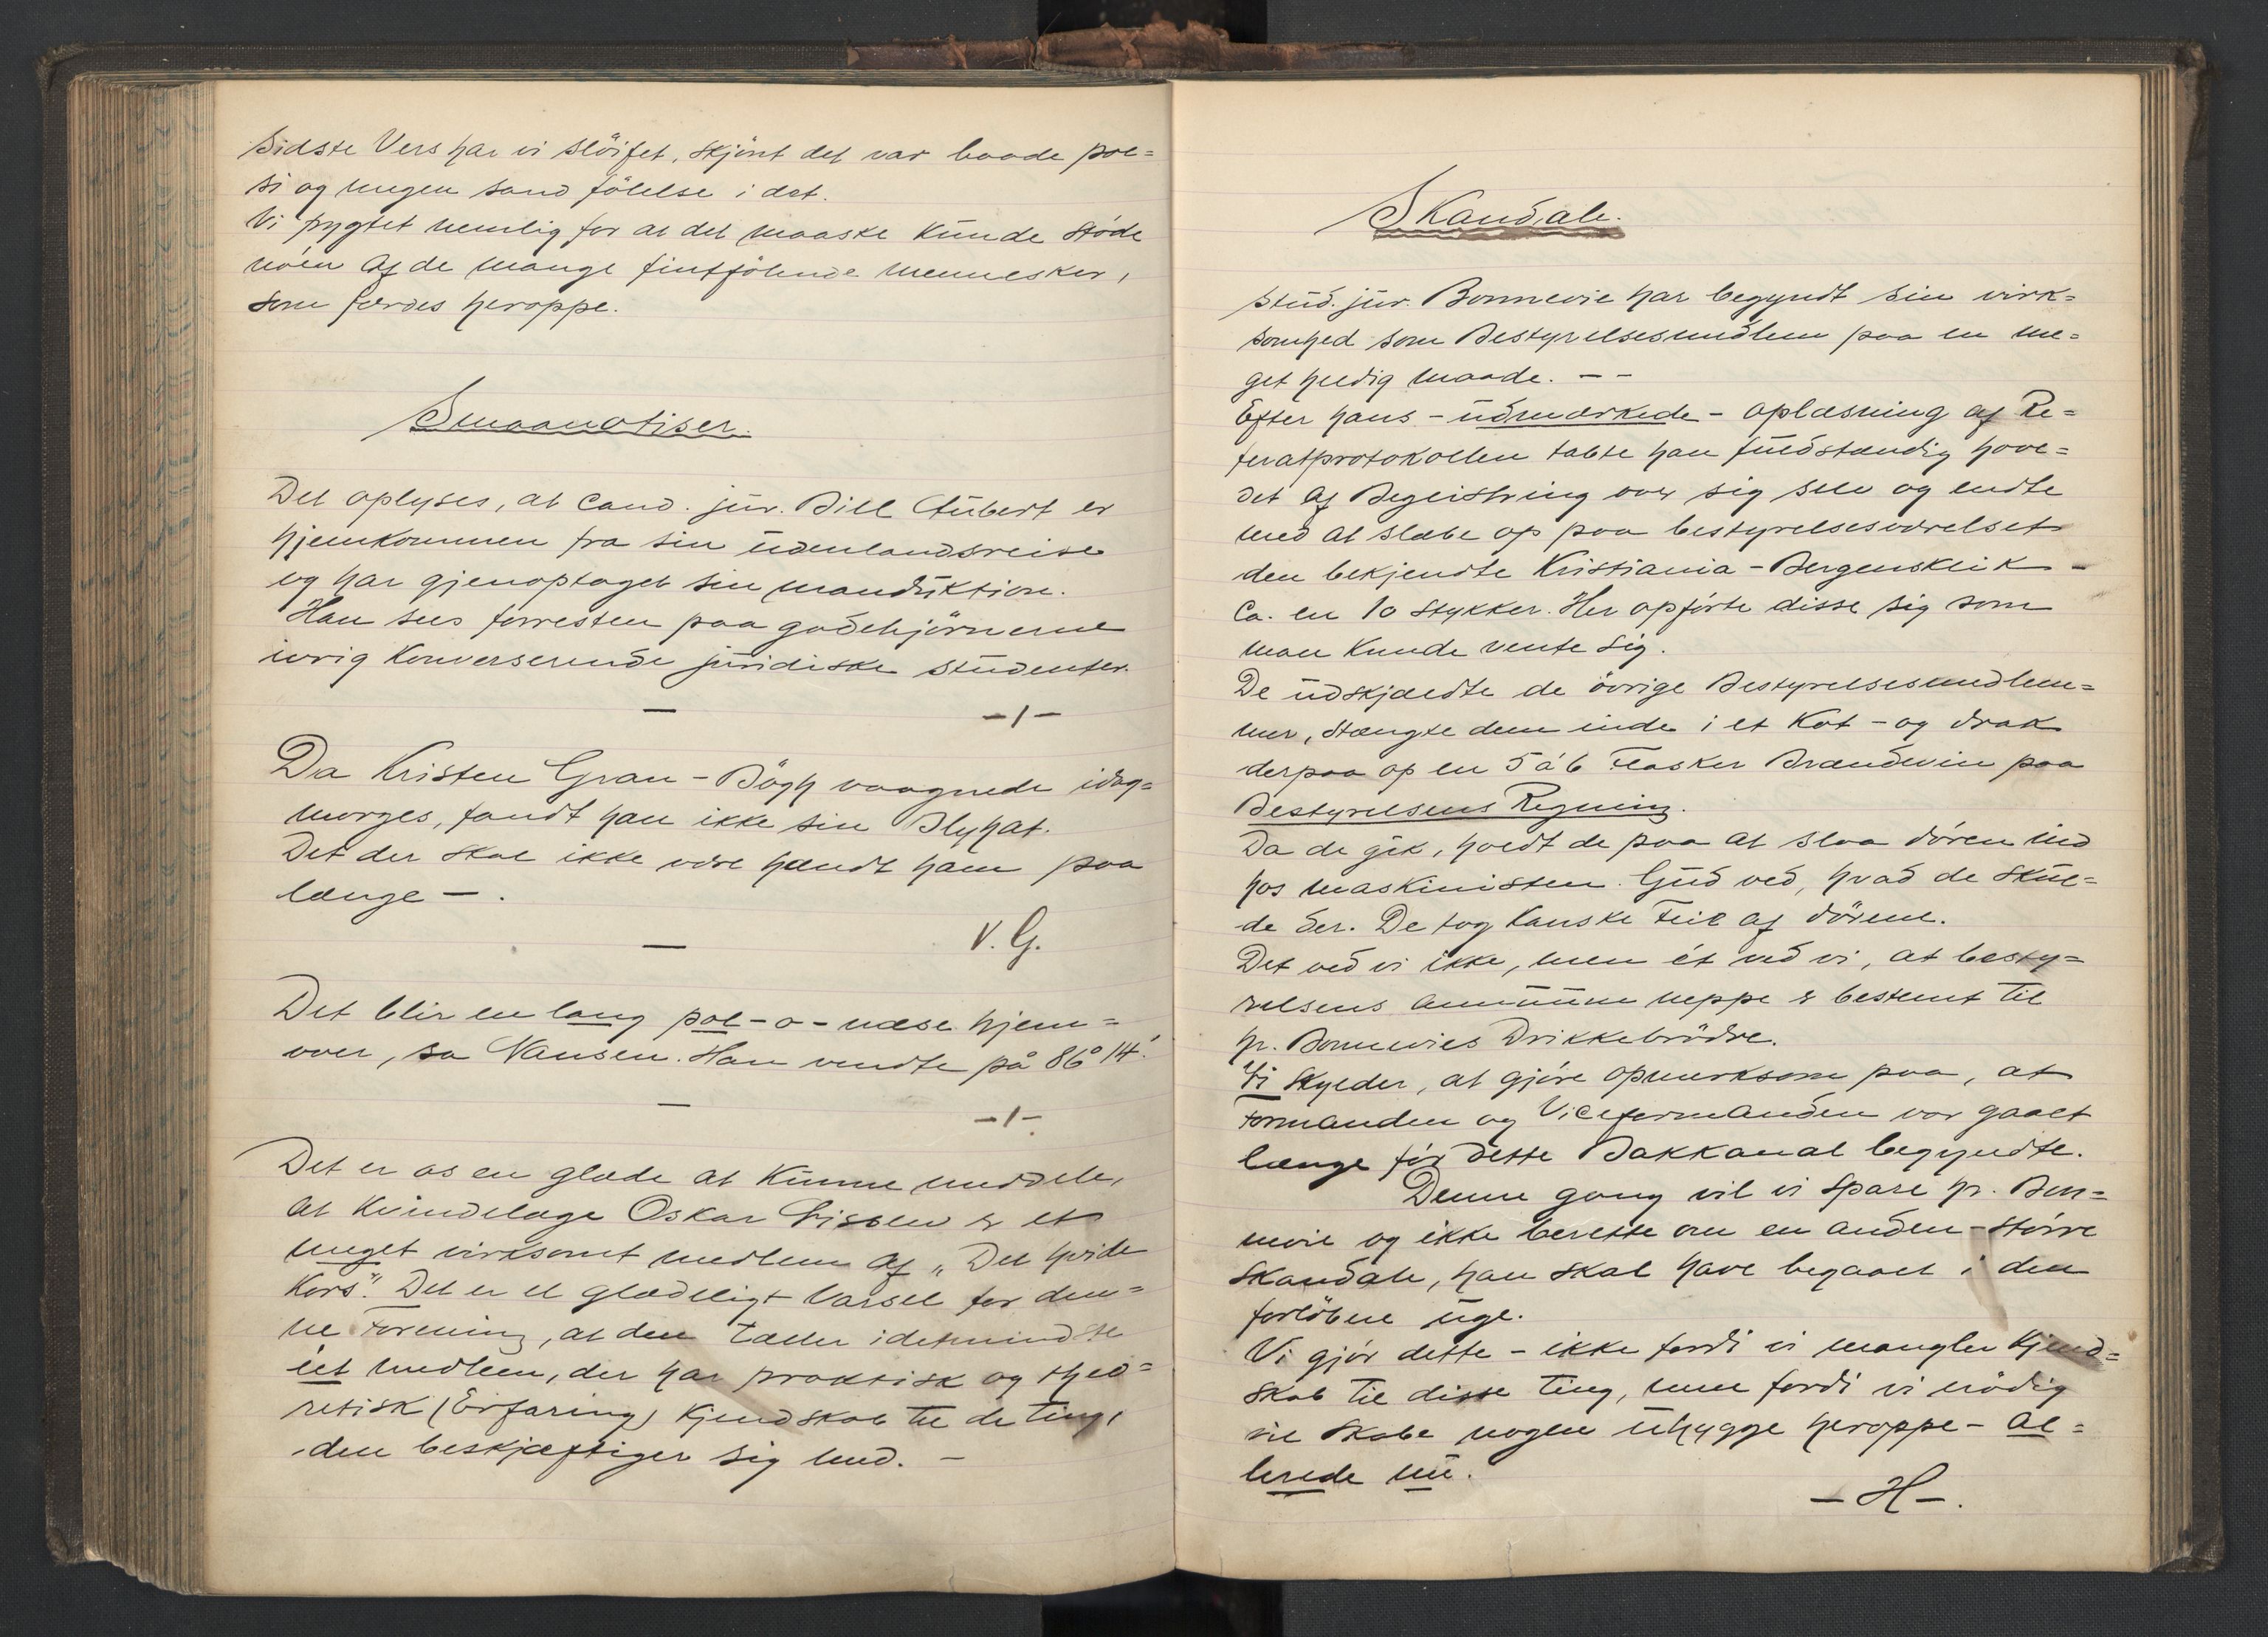 Sidste Vers har vi slöifet, skjönt det var baade poe=
si og megen sand fölelse i det.
Vi frygtet nemlig for at det maaske kunde støde
noen af de mange fintfölende mennesker,
som færdes heroppe.
Smaanotiser.
Det oplyses, at cand. jur. Bill Aubert er
hjemkommen fra sin udenlandsreise
og har gjenoptaget sin manduktion.
Han sees forresten paa gadehjörnerne
ivrig konverserende juridiske studenter.
-/-
Da Kristen Gran-Bögh vaagnede idag=
morges, fandt han ikke sin Blyhat.
Det der skal ikke være hændt ham paa
længe - .
V. G.
Det blir en lang pol-o-næse hjem=
over, sa Nansen. Han vendte på 86° 14'.
-/-
Det er os en glæde at kunne meddele,
at kvindelæge Oskar Nissen er et
meget virksomt medlem af „Det hvide
Kors". Det er et glædeligt Varsel for den=
ne Forening, at den tæller idetmindste
ét medlem, der har praktisk og theo=
retisk (Erfaring) kjendskab til de ting,
den beskjæftiger sig med. -
Skandale.
Stud. jur. Bonnevie har begyndt sin virk=
somhed som Bestyrelsesmedlem paa en me=
get heldig maade. - -
Efter hans - udmærkede - oplæsning af Re=
feratprotokollen tabte han fuldstændig hove=
det af Begeistring over sig selv og endte
med at slæbe op paa bestyrelsesværelset
den bekjendte Kristiania-Bergensklik -
ca. en 10 stykker. Her opførte disse sig som
man kunde vente sig.
De udskjældte de övrige Bestyrelsesmedlem=
mer, stængte dem inde i et Kot - og drak
derpaa op en 5 à 6 Flasker Brændevin paa
Bestyrelsens Regning.
Da de gik, holdt de paa at slaa døren ind
hos maskinisten. Gud ved, hvad de skul=
de der. De tog kanske Feil af dörene.
Det ved vi ikke, men ét ved vi, at besty=
relsens ammüüm neppe er bestemt til
hr. Bonnevies Drikkebrödre.
Vi skylder, at gjøre opmerksom paa, at
Formanden og Viceformanden var gaaet
længe før dette Bakkanal begyndte.
Denne gang vil vi spare hr. Bon=
nevie og ikke berette om en anden - større
Skandale, han skal have begaaet i den
forlöbne uge.
Vi gjør dette - ikke fordi vi mangler kjend=
skab til disse ting, men fordi vi nödig
vil skabe nogen uhygge heroppe - al=
lerede nu.
- H -.